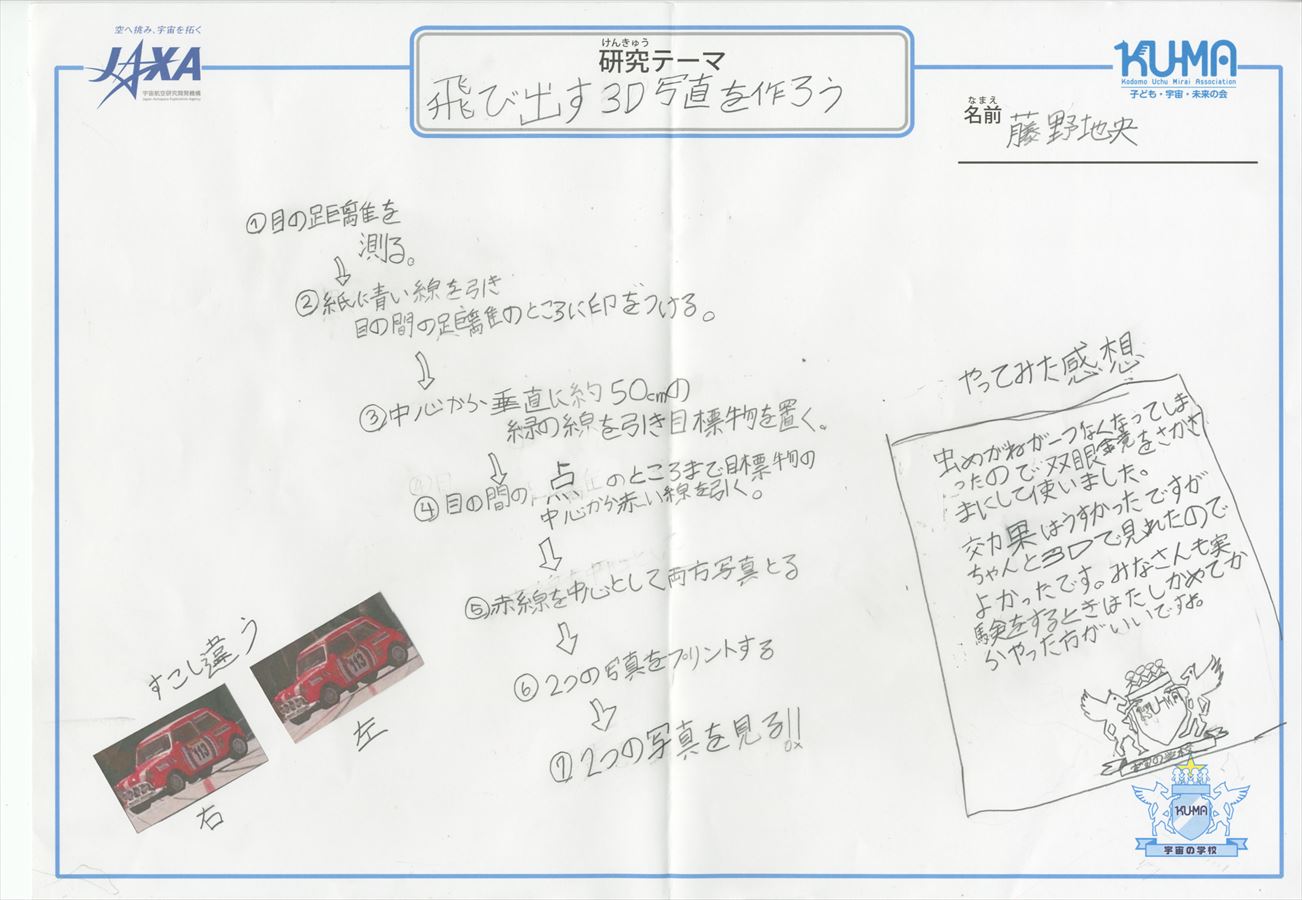 空へ挑み、宇宙を拓く
JAXA
宇宙航空研究開発機構
Japan Aerospace Exploration Agency
けんきゅう
研究テーマ
飛び出す3D写真を作ろう
KUMA
Kodomo Uchu Mirai Association
子ども・宇宙・未来の会
なまえ
名前 藤野地央
①目の距離を
測る。
②紙に青い線を引き
目の間の距離のところに印をつける。
③中心から垂直に約50cmの
緑の線を引き目標物を置く。
④目の間の点のところまで目標物の
中心から赤い線を引く。
⑤赤線を中心として両方写真とる
⑥2つの写真をプリントする
⑦2つの写真を見る!!
すこし違う
113
左
113
右
やってみた感想
虫めがねが一つなくなってしま
ったので双眼鏡をさかさ
まにして使いました。
効果はうすかったですが
ちゃんと3Dで見れたので
よかったです。みなさんも実
験をするときはたしかめてか
らやった方がいいですよ。
KUMA
宇宙の学校
KUMA
宇宙の学校